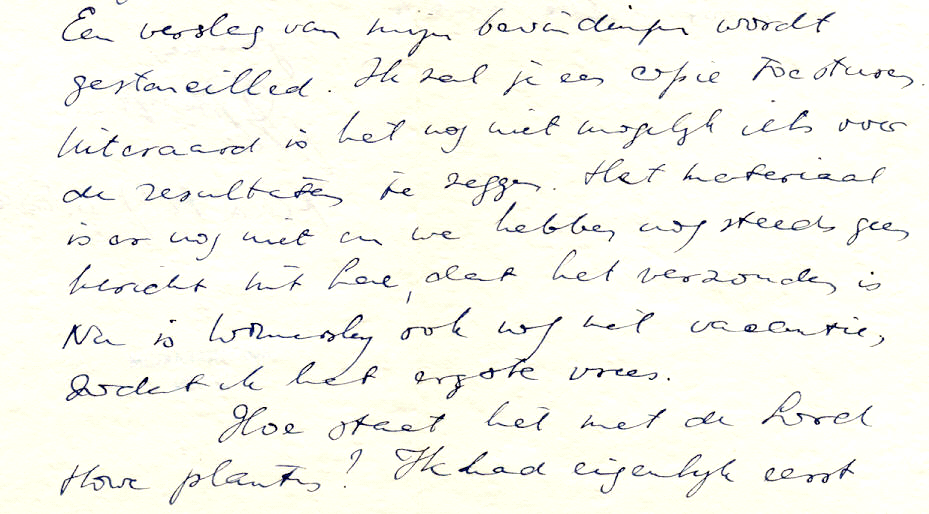 Een verslag van mijn bevindingen wordt
gestencilled. Ik zal je een copie toesturen.
Uiteraard is het nog niet mogelijk iets over
de resultaten te zeggen. Het materiaal
is er nog niet en we hebben nog steeds geen
bericht uit Lae, dat het verzonden is
Nu is Womersley ook nog met vacantie,
zodat ik het ergste vrees.
Hoe staat het met de Lord
Howe plants? Ik had eigenlijk eerst